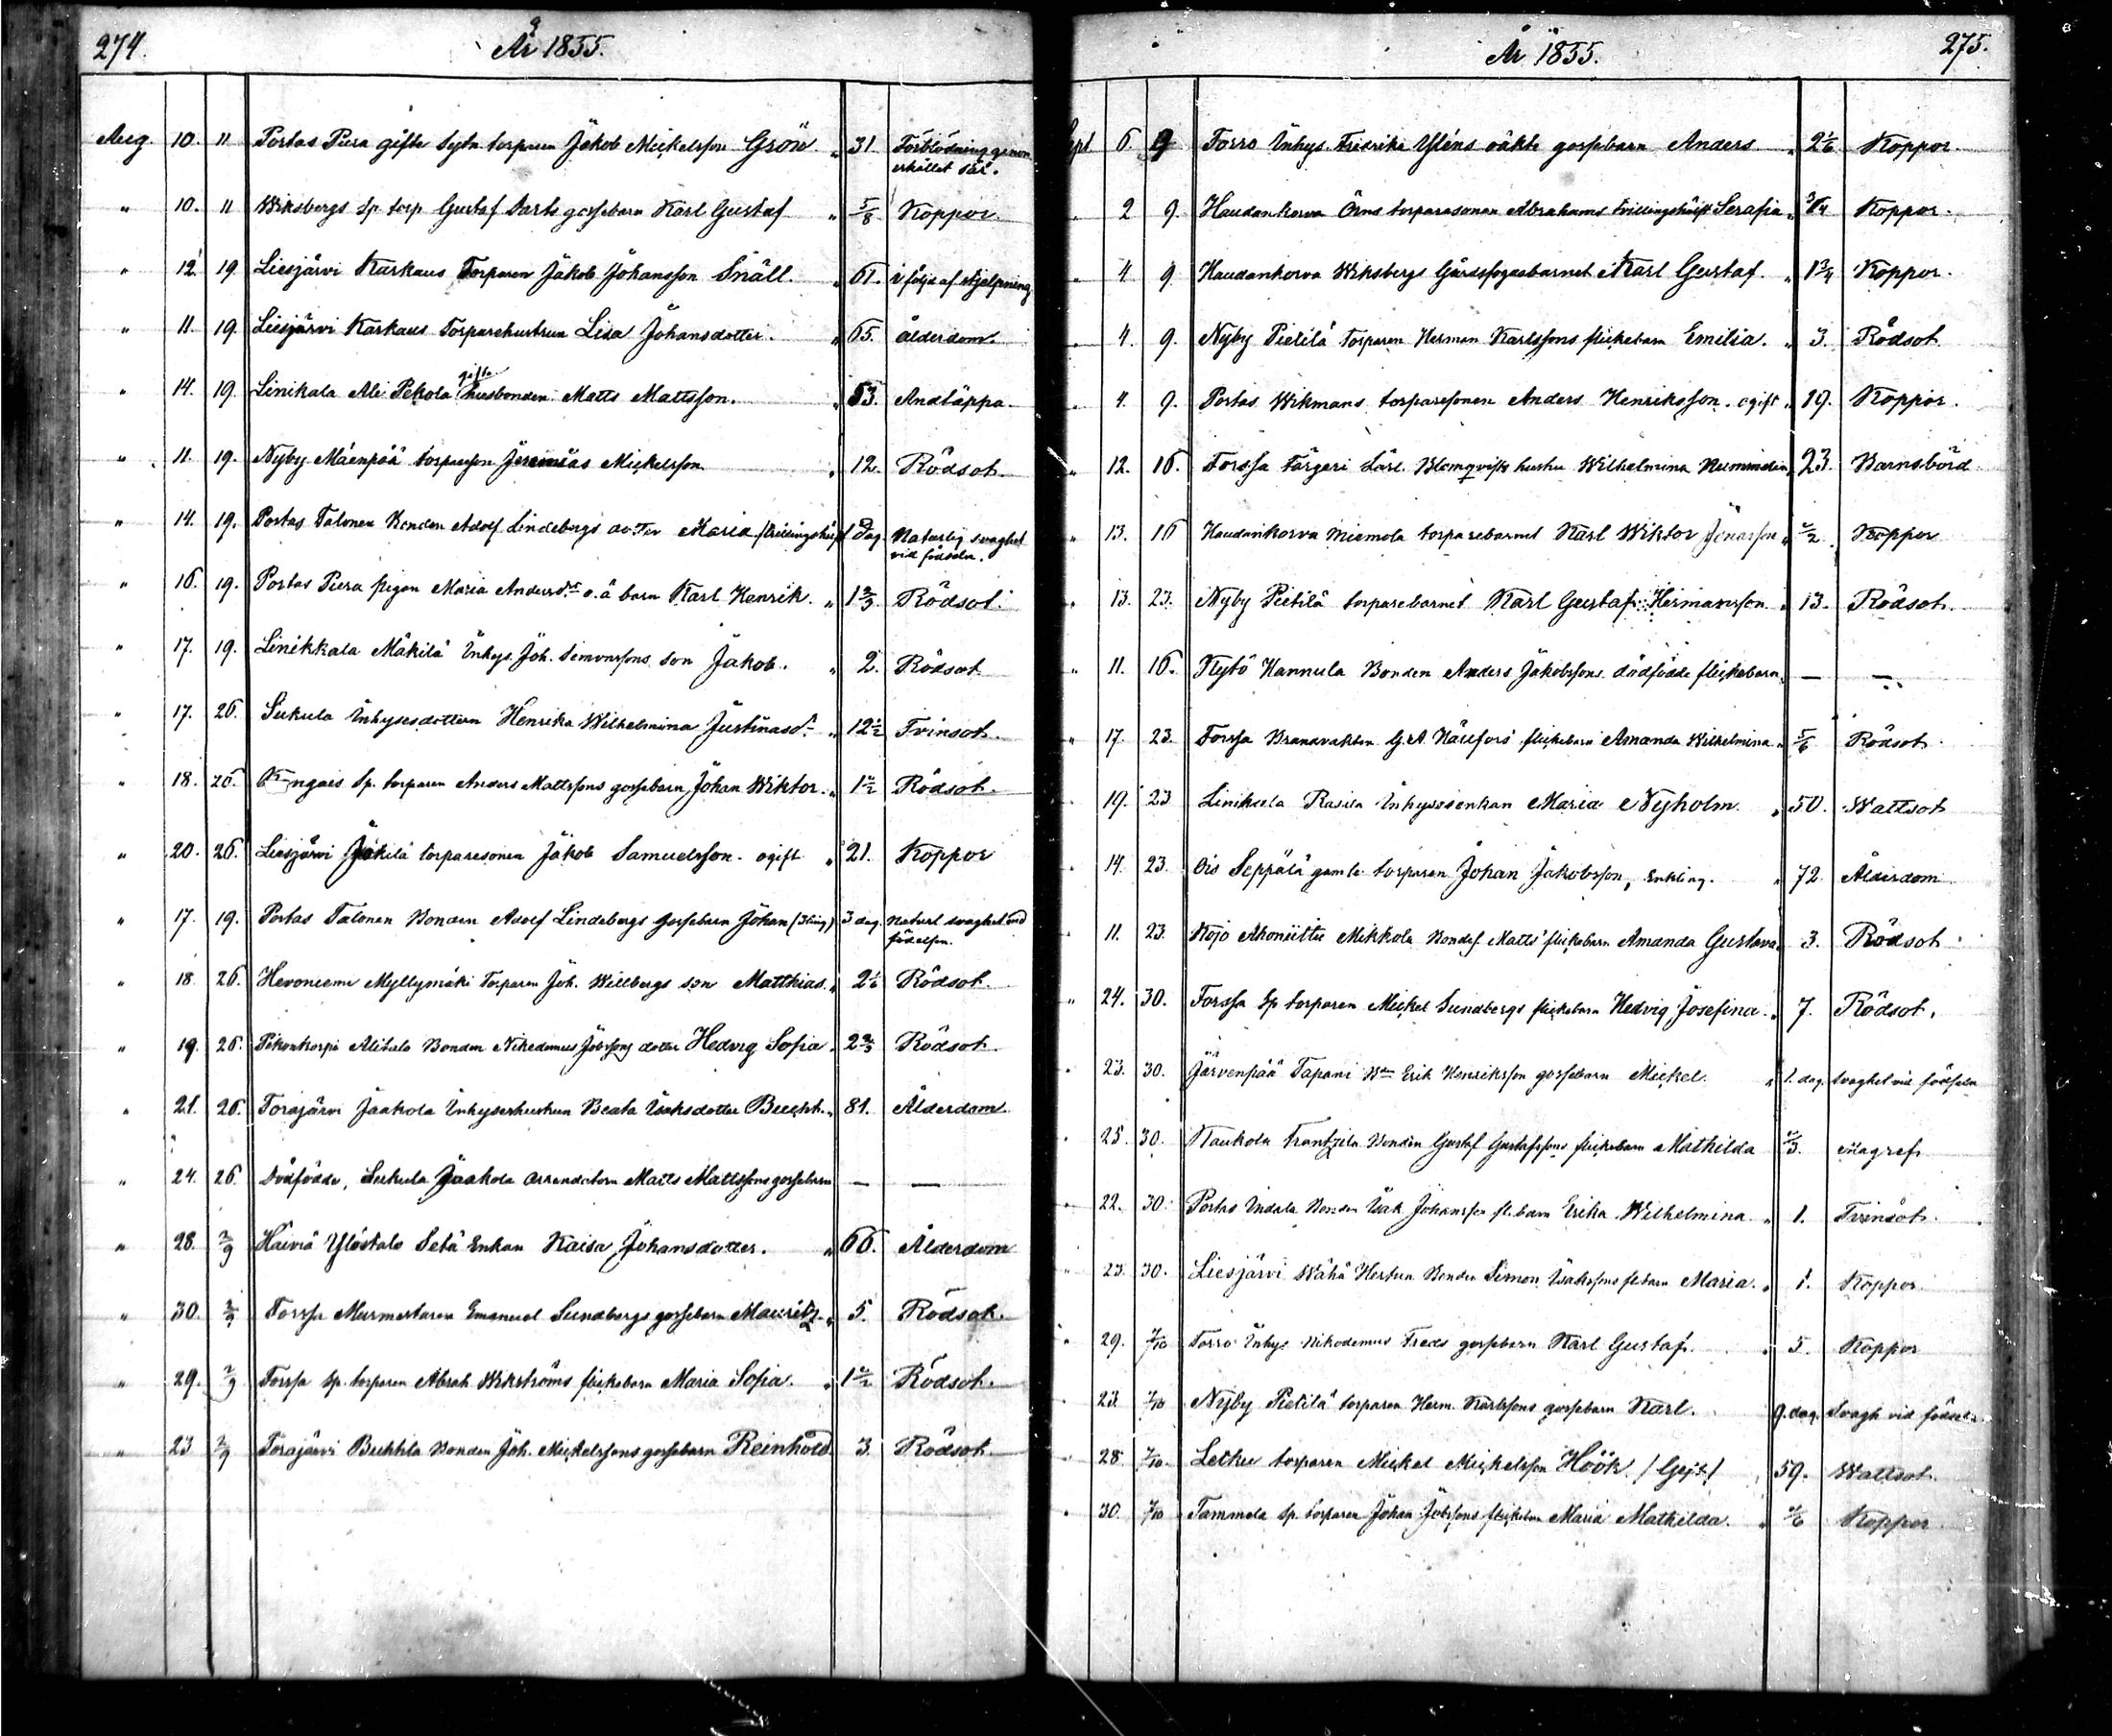 274.
År 1855.
Aug. 10. 11 Portas Piera gifte Sytn torparen Jakob Mickelsson Grön 31. Förblödning genom
erhållet sår.
" 10. 11 Wiksbergs Sp torp Gustaf Darts gossebarn Karl Gustaf " 5/8 Koppor
" 12 19 Liesjärvi Karkaus Torparen Jakob Johansson Snäll. " 61. i följd af stjelpning
" 11. 19. Liesjärvi Karkaus Torparehustrun Lisa Johansdotter. " 65. ålderdom.
gifte
" 14. 19. Linikala Ali Pekola husbonden Matts Mattsson. " 53. Andtäppa
" 11. 19. Nyby Mäenpää torpareson Jeremias Mickelsson " 12. Rödsot
" 14. 19. Portas Talonen Bonden Adolf Lindebergs dotter Maria /trillingshälft 1 dag Naturlig svaghet
vid födseln.
" 16. 19. Portas Piera pigan Maria Andersdr o.ä barn Karl Henrik. " 1 2/3 Rödsot
" 17. 19. Linikkala Mäkilä Inhys. Joh. Simonssons son Jakob. " 2. Rödsot
" 17. 26. Sukula Inhysesdottern Henrika Wilhelmina Justinasdr " 12 1/2 Tvinsot.
" 18. 26. Kengais Sp. torparen Anders Mattssons gossebarn Johan Wiktor. " 1 1/2 Rödsot.
" 20. 26. Liesjärvi Jäkilä torparesonen Jakob Samuelsson. ogift " 21. Koppor
" 17. 19. Portas Talonen Bonden Adolf Lindebergs gossebarn Johan (3ling) 3 dag Naturl svaghet vid
födelsen.
" 18 26. Hevoniemi Myllymäki Torparen Joh. Willbergs son Matthias. " 2 1/2 Rödsot.
" 19. 26. Pikonkorpi Alitalo Bonden Nikodemus Jobssons dotter Hedvig Sofia. 2 2/3 Rödsot.
" 21. 26. Torajärvi Jaakola Inhyseshustrun Beata Isaksdotter Buchht. " 81. Ålderdom.
" 24. 26. Dödfödde, Sukula Jaakola arrendatorn Matts Mattssons gossebarn — —
" 28. 2/9 Häiviä Ylöstalo Setä Enkan Kaisa Johansdotter. " 66. Ålderdom
" 30. 2/9 Forssa Murmestaren Emanuel Sundbergs gossebarn Mauritz. " 5. Rödsot.
" 29. 2/9 Forssa sp. torparen Abrah Wikströms flickebarn Maria Sofia. " 1 1/2 Rödsot.
" 23 2/9 Torajärvi Buchtila Bonden Joh. Mickelssons gossebarn Reinhold 3. Rödsot
År 1855.
275.
Sept 6 9 Torro Inhys Fredrika Yléns oäkta gossebarn Anders " 2 1/6 Koppor
" 2 9. Haudankorva Örns torparesonen Abrahams tvillingshälft Serafia " 3/4 Koppor.
" 4 9. Haudankorva Wiksbergs Gårdsfogdebarnet Karl Gustaf. " 1 3/4 Koppor.
" 4. 9. Nyby Pietilä torparen Herman Karlssons flickebarn Emilia. " 3. Rödsot
" 4. 9. Portas Wikmans torparesonen Anders Henriksson. ogift " 19. Koppor.
" 12. 16. Forssa Färgeri Lärl. Blomqvists hustru Wilhelmina Numindin 23. Barnsbörd
" 13. 16 Haudankorva Miemola torparebarnet Karl Wiktor Jonasson " 1/2 Koppor
" 13. 23. Nyby Pietilä torparebarnet Karl Gustaf Hermansson " 13. Rödsot.
" 11. 16. Kytö Hannula Bonden Anders Jakobssons dödfödde flickebarn — —
" 17. 23. Forssa Brandvakten G.A. Härefors flickebarn Amanda Wilhelmina " 5/6 Rödsot.
19. 23 Linikala Rasila Inhysesenkan Maria Nyholm " 50. Wattsot
" 14. 23. Ois Seppälä gamle torparen Johan Jakobsson, Enkling. " 72 Ålderdom
11. 23. Kojo Ahoniittu Mikkola Bondes. Matts' flickebarn Amanda Gustava 3. Rödsot
" 24. 30. Forssa Sp torparen Mickel Sundbergs flickebarn Hedvig Josefina. " 7. Rödsot.
" 23. 30. Järvenpää Tapani Bdn Erik Henriksson gossebarn Mickel. " 1. dag. Svaghet vid födseln
" 25. 30. Kaukola Frantzila Bonden Gustaf Gustafssons flickebarn Mathilda 2/3. Magref
" 22. 30. Portas Indala Bonden Isak Johansson fl.barn Erika Wilhelmina " 1. Tvinsot.
" 23. 30. Liesjärvi Wähä Hertua Bonden Simon Isakssons flbarn Maria. " 1. Koppor.
" 29. 7/10 Torro Inhys Nikodemus Freds gossebarn Karl Gustaf. " 5. Koppor
" 23. 7/10 Nyby Pietilä torparen Herm. Karlssons gossebarn Karl. 9. dag. Svagh vid födsel
" 28 7/10. Letku torparen Mickel Mickelsson Höök. / Gift / 59. Wattsot.
" 30. 7/10 Tammela Sp. torparen Johan Jobssons flickebarn Maria Mathilda. " 1/6 Koppor.